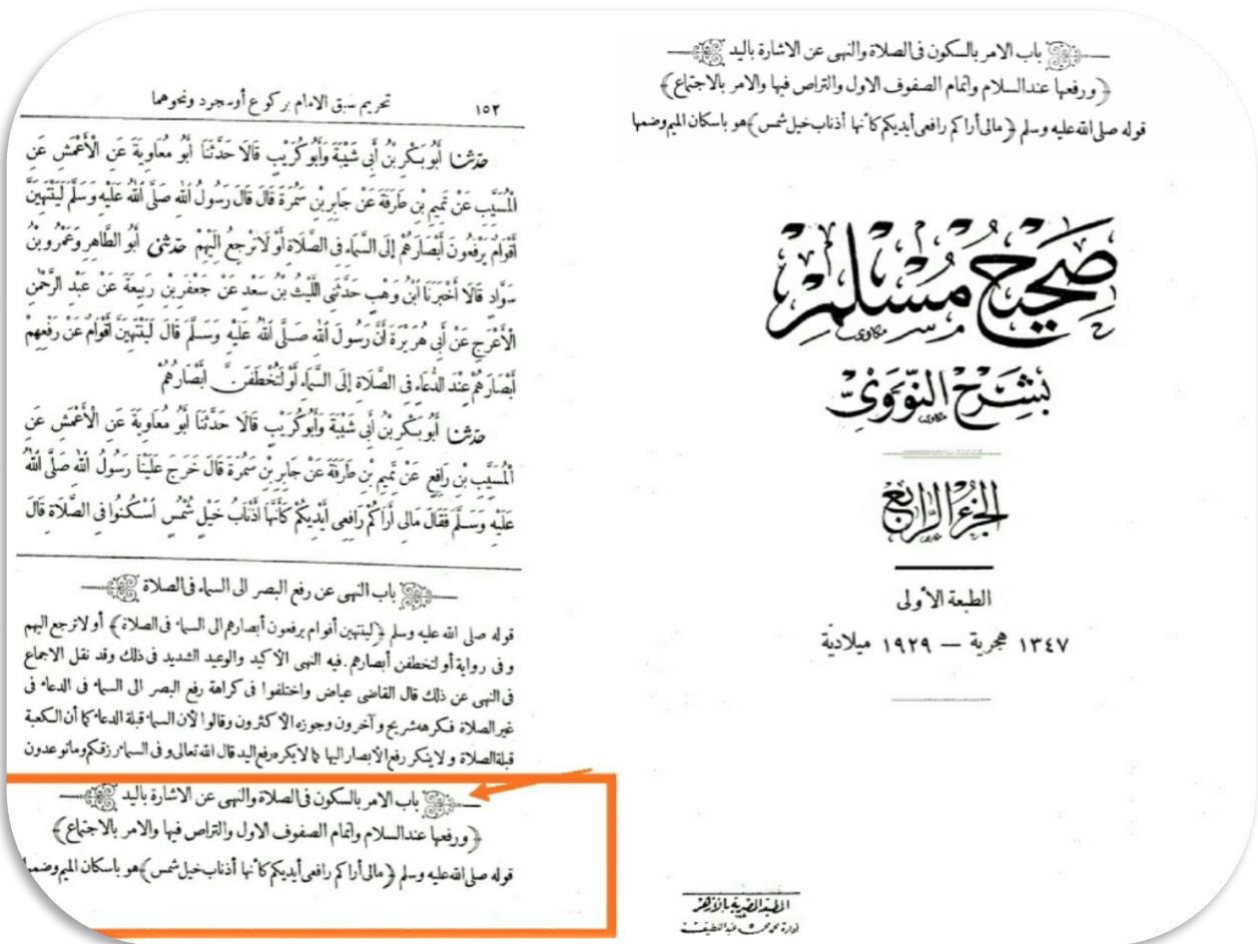 باب الامر بالسكون فى الصلاة والنهى عن الاشارة باليد
﴿ ورفعها عند السلام واتمام الصفوف الاول والتراص فيها والامر بالاجتماع ﴾
قوله صلى الله عليه وسلم ﴿ مالى أراكم رافعى أيديكم كأنها أذناب خيل شمس ﴾ هو باسكان الميم وضمها
صَحِيحُ مُسْلِمْ
بِشَرْحِ النَّوَوِيّ
الجزء الرابع
الطبعة الأولى
١٣٤٧ هجرية — ١٩٢٩ ميلادية
المطبعة المصرية بالأزهر
ادارة محمد محمد عبد اللطيف
تحريم سبق الامام بركوع أو سجود ونحوهما ١٥٢
حَدَّثَنَا أَبُو بَكْرِ بْنُ أَبِي شَيْبَةَ وَأَبُو كُرَيْبٍ قَالَا حَدَّثَنَا أَبُو مُعَاوِيَةَ عَنِ الْأَعْمَشِ عَنِ
الْمُسَيَّبِ عَنْ تَمِيمِ بْنِ طَرَفَةَ عَنْ جَابِرِ بْنِ سَمُرَةَ قَالَ قَالَ رَسُولُ اللهِ صَلَّى اللهُ عَلَيْهِ وَسَلَّمَ لَيَنْتَهِيَنَّ
أَقْوَامٌ يَرْفَعُونَ أَبْصَارَهُمْ إِلَى السَّمَاءِ فِى الصَّلَاةِ أَوْ لَا تَرْجِعُ إِلَيْهِمْ حَدَّثَنِى أَبُو الطَّاهِرِ وَعَمْرُو بْنُ
سَوَّادٍ قَالَا أَخْبَرَنَا ابْنُ وَهْبٍ حَدَّثَنِى اللَّيْثُ بْنُ سَعْدٍ عَنْ جَعْفَرِ بْنِ رَبِيعَةَ عَنْ عَبْدِ الرَّحْمٰنِ
الْأَعْرَجِ عَنْ أَبِى هُرَيْرَةَ أَنَّ رَسُولَ اللهِ صَلَّى اللهُ عَلَيْهِ وَسَلَّمَ قَالَ لَيَنْتَهِيَنَّ أَقْوَامٌ عَنْ رَفْعِهِمْ
أَبْصَارَهُمْ عِنْدَ الدُّعَاءِ فِى الصَّلَاةِ إِلَى السَّمَاءِ أَوْ لَتُخْطَفَنَّ أَبْصَارُهُمْ
حَدَّثَنَا أَبُو بَكْرِ بْنُ أَبِى شَيْبَةَ وَأَبُو كُرَيْبٍ قَالَا حَدَّثَنَا أَبُو مُعَاوِيَةَ عَنِ الْأَعْمَشِ عَنِ
الْمُسَيَّبِ بْنِ رَافِعٍ عَنْ تَمِيمِ بْنِ طَرَفَةَ عَنْ جَابِرِ بْنِ سَمُرَةَ قَالَ خَرَجَ عَلَيْنَا رَسُولُ اللهِ صَلَّى اللهُ
عَلَيْهِ وَسَلَّمَ فَقَالَ مَالِى أَرَاكُمْ رَافِعِى أَيْدِيكُمْ كَأَنَّهَا أَذْنَابُ خَيْلٍ شُمْسٍ اسْكُنُوا فِى الصَّلَاةِ قَالَ
باب النهى عن رفع البصر الى السماء فى الصلاة
قوله صلى الله عليه وسلم ﴿ لينتهين أقوام يرفعون أبصارهم الى السماء فى الصلاة ﴾ أو لا ترجع اليهم
وفى رواية أو لتخطفن أبصارهم. فيه النهى الأكيد والوعيد الشديد فى ذلك وقد نقل الاجماع
فى النهى عن ذلك قال القاضى عياض واختلفوا فى كراهة رفع البصر الى السماء فى الدعاء فى
غير الصلاة فكرهه شريح وآخرون وجوزه الأكثرون وقالوا لأن السماء قبلة الدعاء كما أن الكعبة
قبلة الصلاة ولا ينكر رفع الأبصار اليها كما لا يكره رفع اليد قال الله تعالى وفى السماء رزقكم وما توعدون
باب الامر بالسكون فى الصلاة والنهى عن الاشارة باليد
﴿ ورفعها عند السلام واتمام الصفوف الاول والتراص فيها والامر بالاجتماع ﴾
قوله صلى الله عليه وسلم ﴿ مالى أراكم رافعى أيديكم كأنها أذناب خيل شمس ﴾ هو باسكان الميم وضمها